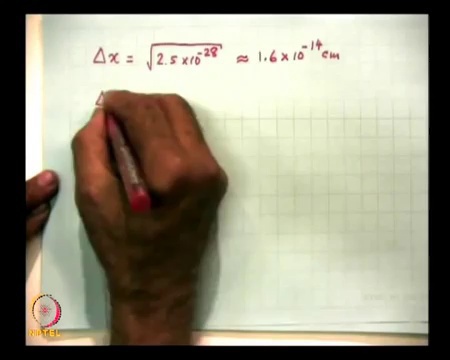 Δx = √2.5×10⁻²⁸ ≈ 1.6×10⁻¹⁴ cm
Δ
NPTEL